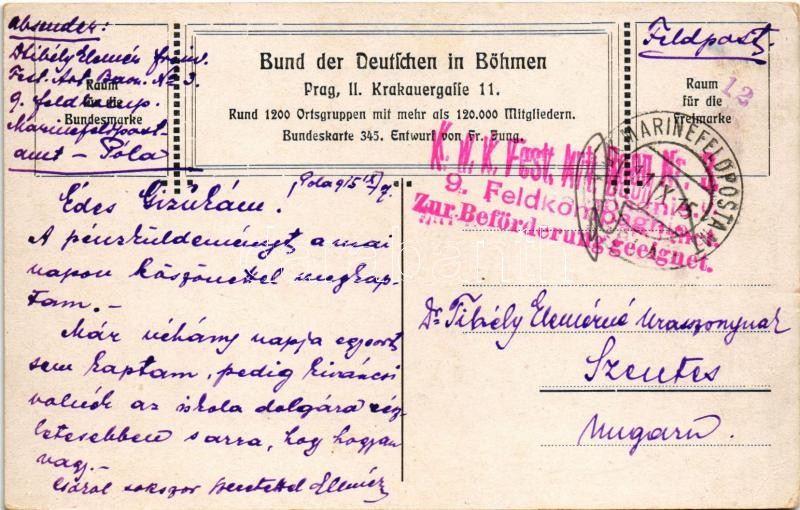 Absender:
Feldpost.
Dr. Tibély Elemér
Fest. Art. Baon. No 3.
9. Feldkomp.
Marinefeldpost
amt - Pola
Raum
für die
Bundesmarke
Bund der Deutschen in Böhmen
Prag, II. Krakauergasse 11.
Rund 1200 Ortsgruppen mit mehr als 120.000 Mitgliedern.
Bundeskarte 345. Entwurf von Fr. Jung.
Raum
für die
Freimarke
12
MARINEFELDPOSTAMT
K. u. K. Fest. Art. Baon Nr. 3.
9. Feldkompagnie
Zur Beförderung geeignet.
Pola 915 IX/7.
Édes Gizukám.
A pénzküldeményt a mai
napon köszönettel megkap-
tam. -
Már néhány napja egy sort
sem kaptam, pedig kiváncsi
volnék az iskola dolgára rész-
letesebben s arra, hogy hogyan
vagy. -
Csókol sokszor szeretettel Elemér
Dr Tibély Elemérné Uraszonynak
Szentes
Ungarn.